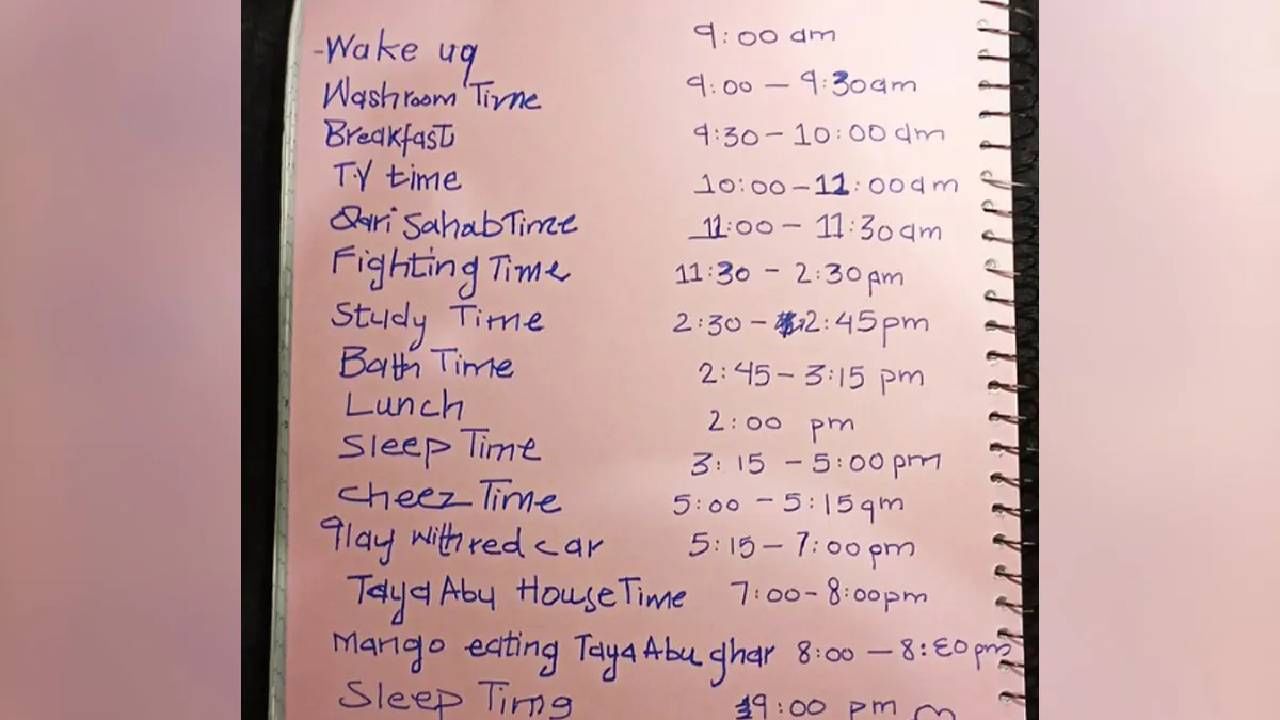 -Wake uq 9:00 am
Washroom Time 9:00 - 9:30am
Breakfast 9:30 - 10:00 am
T.V time 10:00 - 11:00am
Qari SahabTime 11:00 - 11:30am
Fighting Time 11:30 - 2:30pm
Study Time 2:30 - 2:45pm
Bath Time 2:45 - 3:15 pm
Lunch 2:00 pm
Sleep Time 3:15 - 5:00pm
cheez Time 5:00 - 5:15qm
qlay with red car 5:15 - 7:00pm
Taya Abu House Time 7:00 - 8:00pm
Mango eating Taya Abu ghar 8:00 - 8:30 pm
Sleep Time 9:00 pm